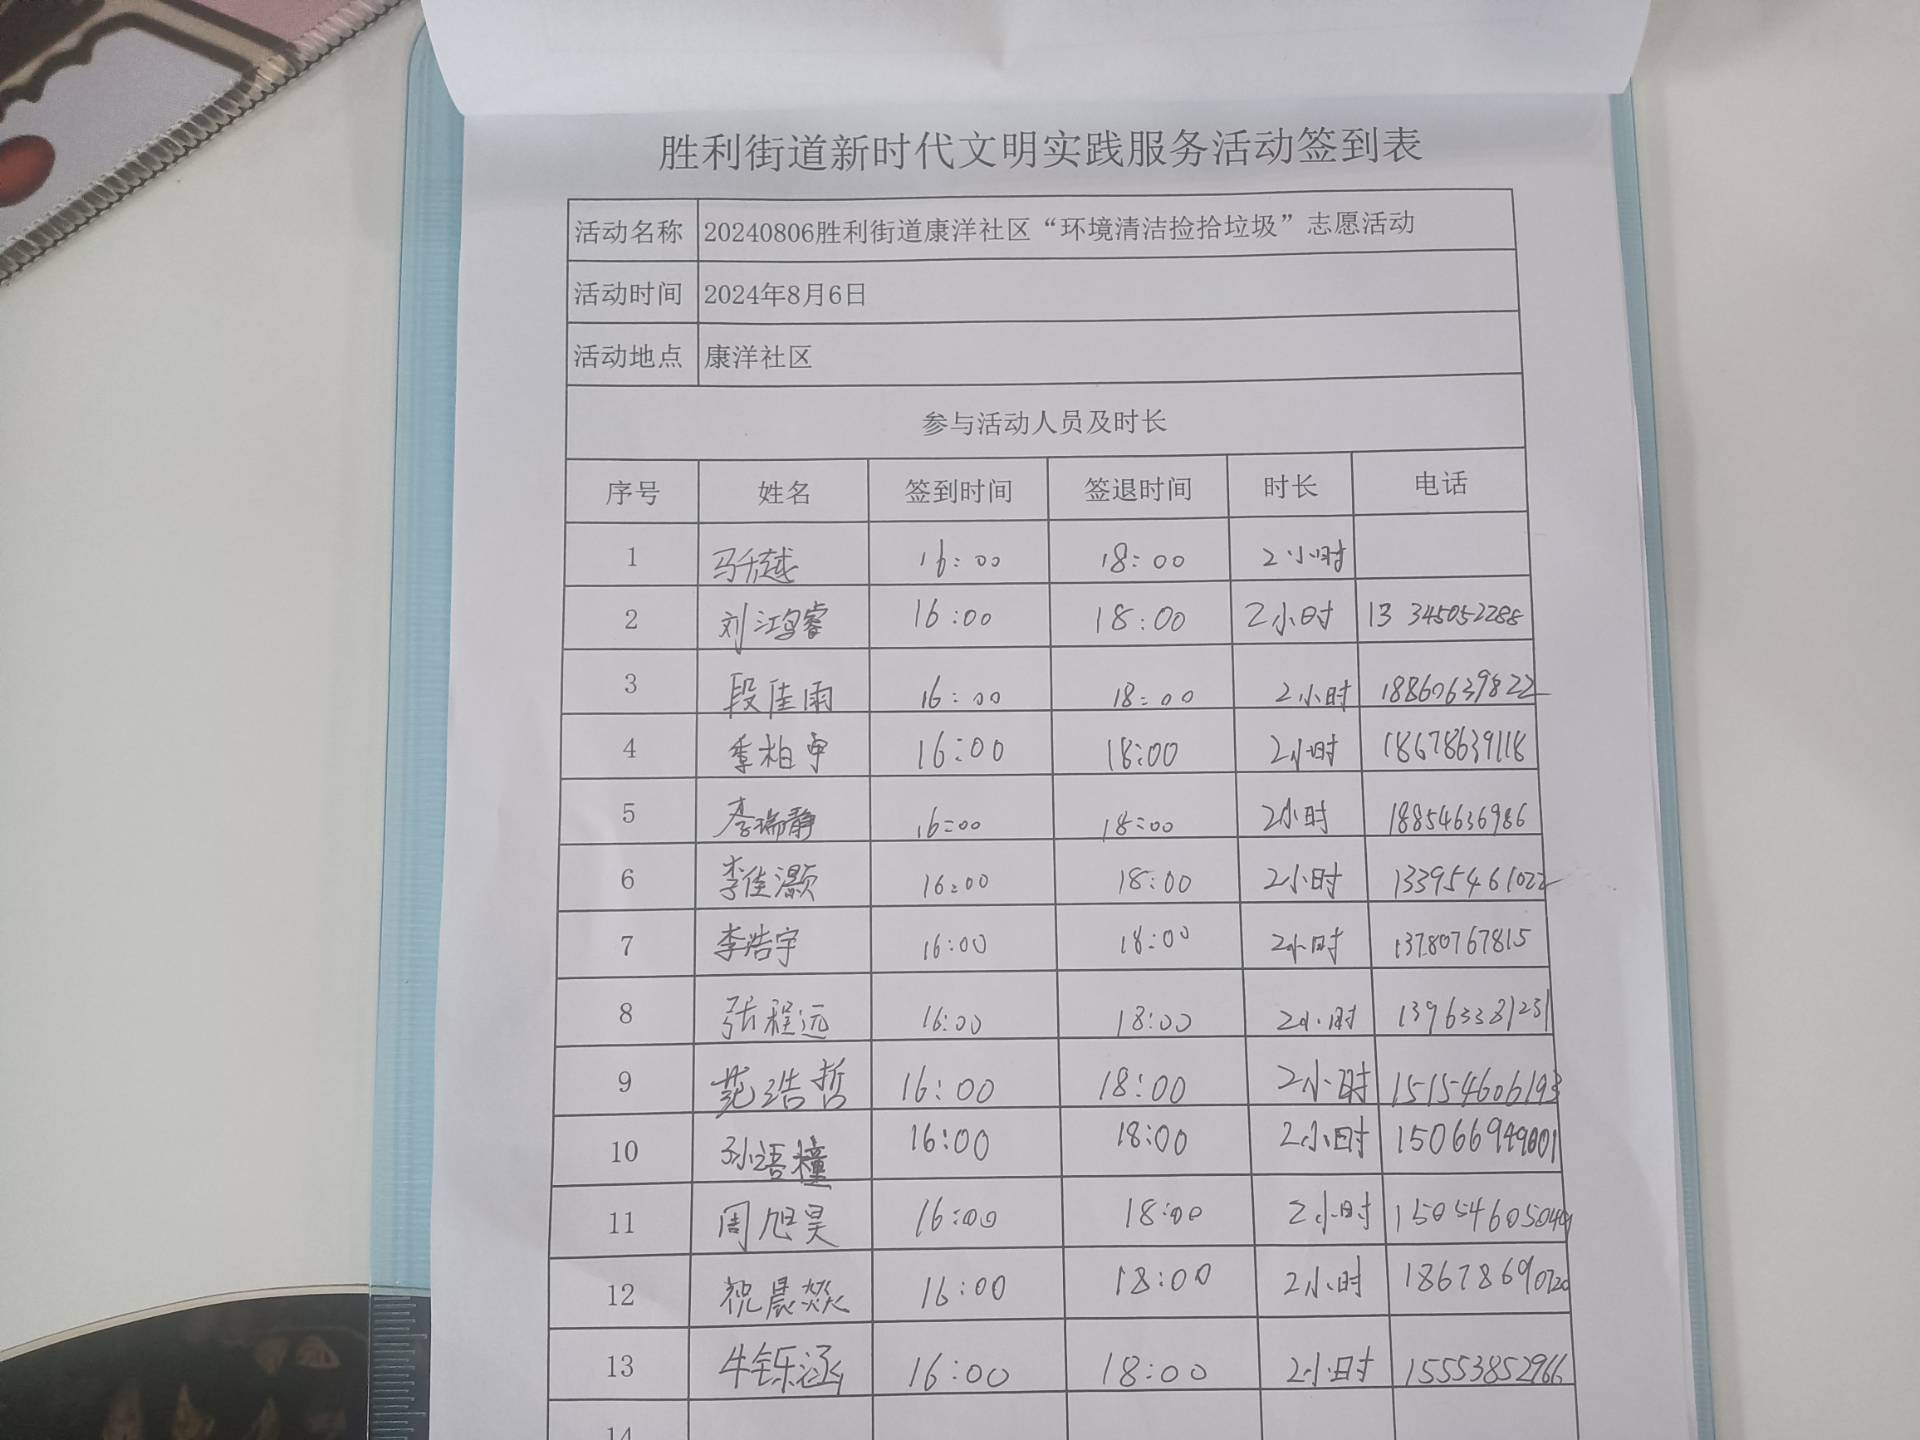 胜利街道新时代文明实践服务活动签到表
活动名称 20240806胜利街道康洋社区“环境清洁捡拾垃圾”志愿活动
活动时间 2024年8月6日
活动地点 康洋社区
参与活动人员及时长
序号 姓名 签到时间 签退时间 时长 电话
1 马千越 16:00 18:00 2小时
2 刘江鸿睿 16:00 18:00 2小时 13345052288
3 段佳雨 16:00 18:00 2小时 18860639822
4 季柏宇 16:00 18:00 2小时 18678639118
5 李瑞静 16:00 18:00 2小时 18854636986
6 李佳灏 16:00 18:00 2小时 13395461022
7 李浩宇 16:00 18:00 2小时 13780767815
8 张程远 16:00 18:00 2小时 13963381231
9 苑浩哲 16:00 18:00 2小时 15154606193
10 孙语橦 16:00 18:00 2小时
11 周旭昊 16:00 18:00 2小时 15054605049
12 祝晨焱 16:00 18:00 2小时 18678690720
13 牛铄涵 16:00 18:00 2小时 15553852966
14